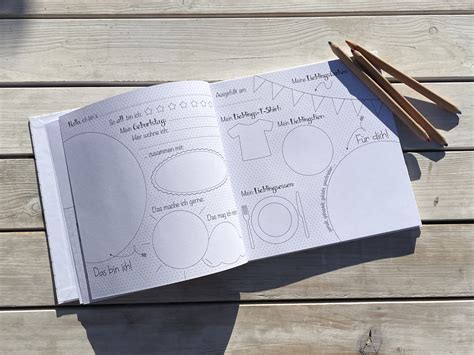 Hallo, ich bin's
So alt bin ich:
Mein Geburtstag:
Hier wohne ich:
... zusammen mit:
Das mache ich gerne:
Das mag ich
Das bin ich!
Ausgefüllt am:
Meine Lieblingsfarben:
Mein Lieblings-T-Shirt:
Mein Lieblingstier:
Mein Lieblingsessen:
Für dich!